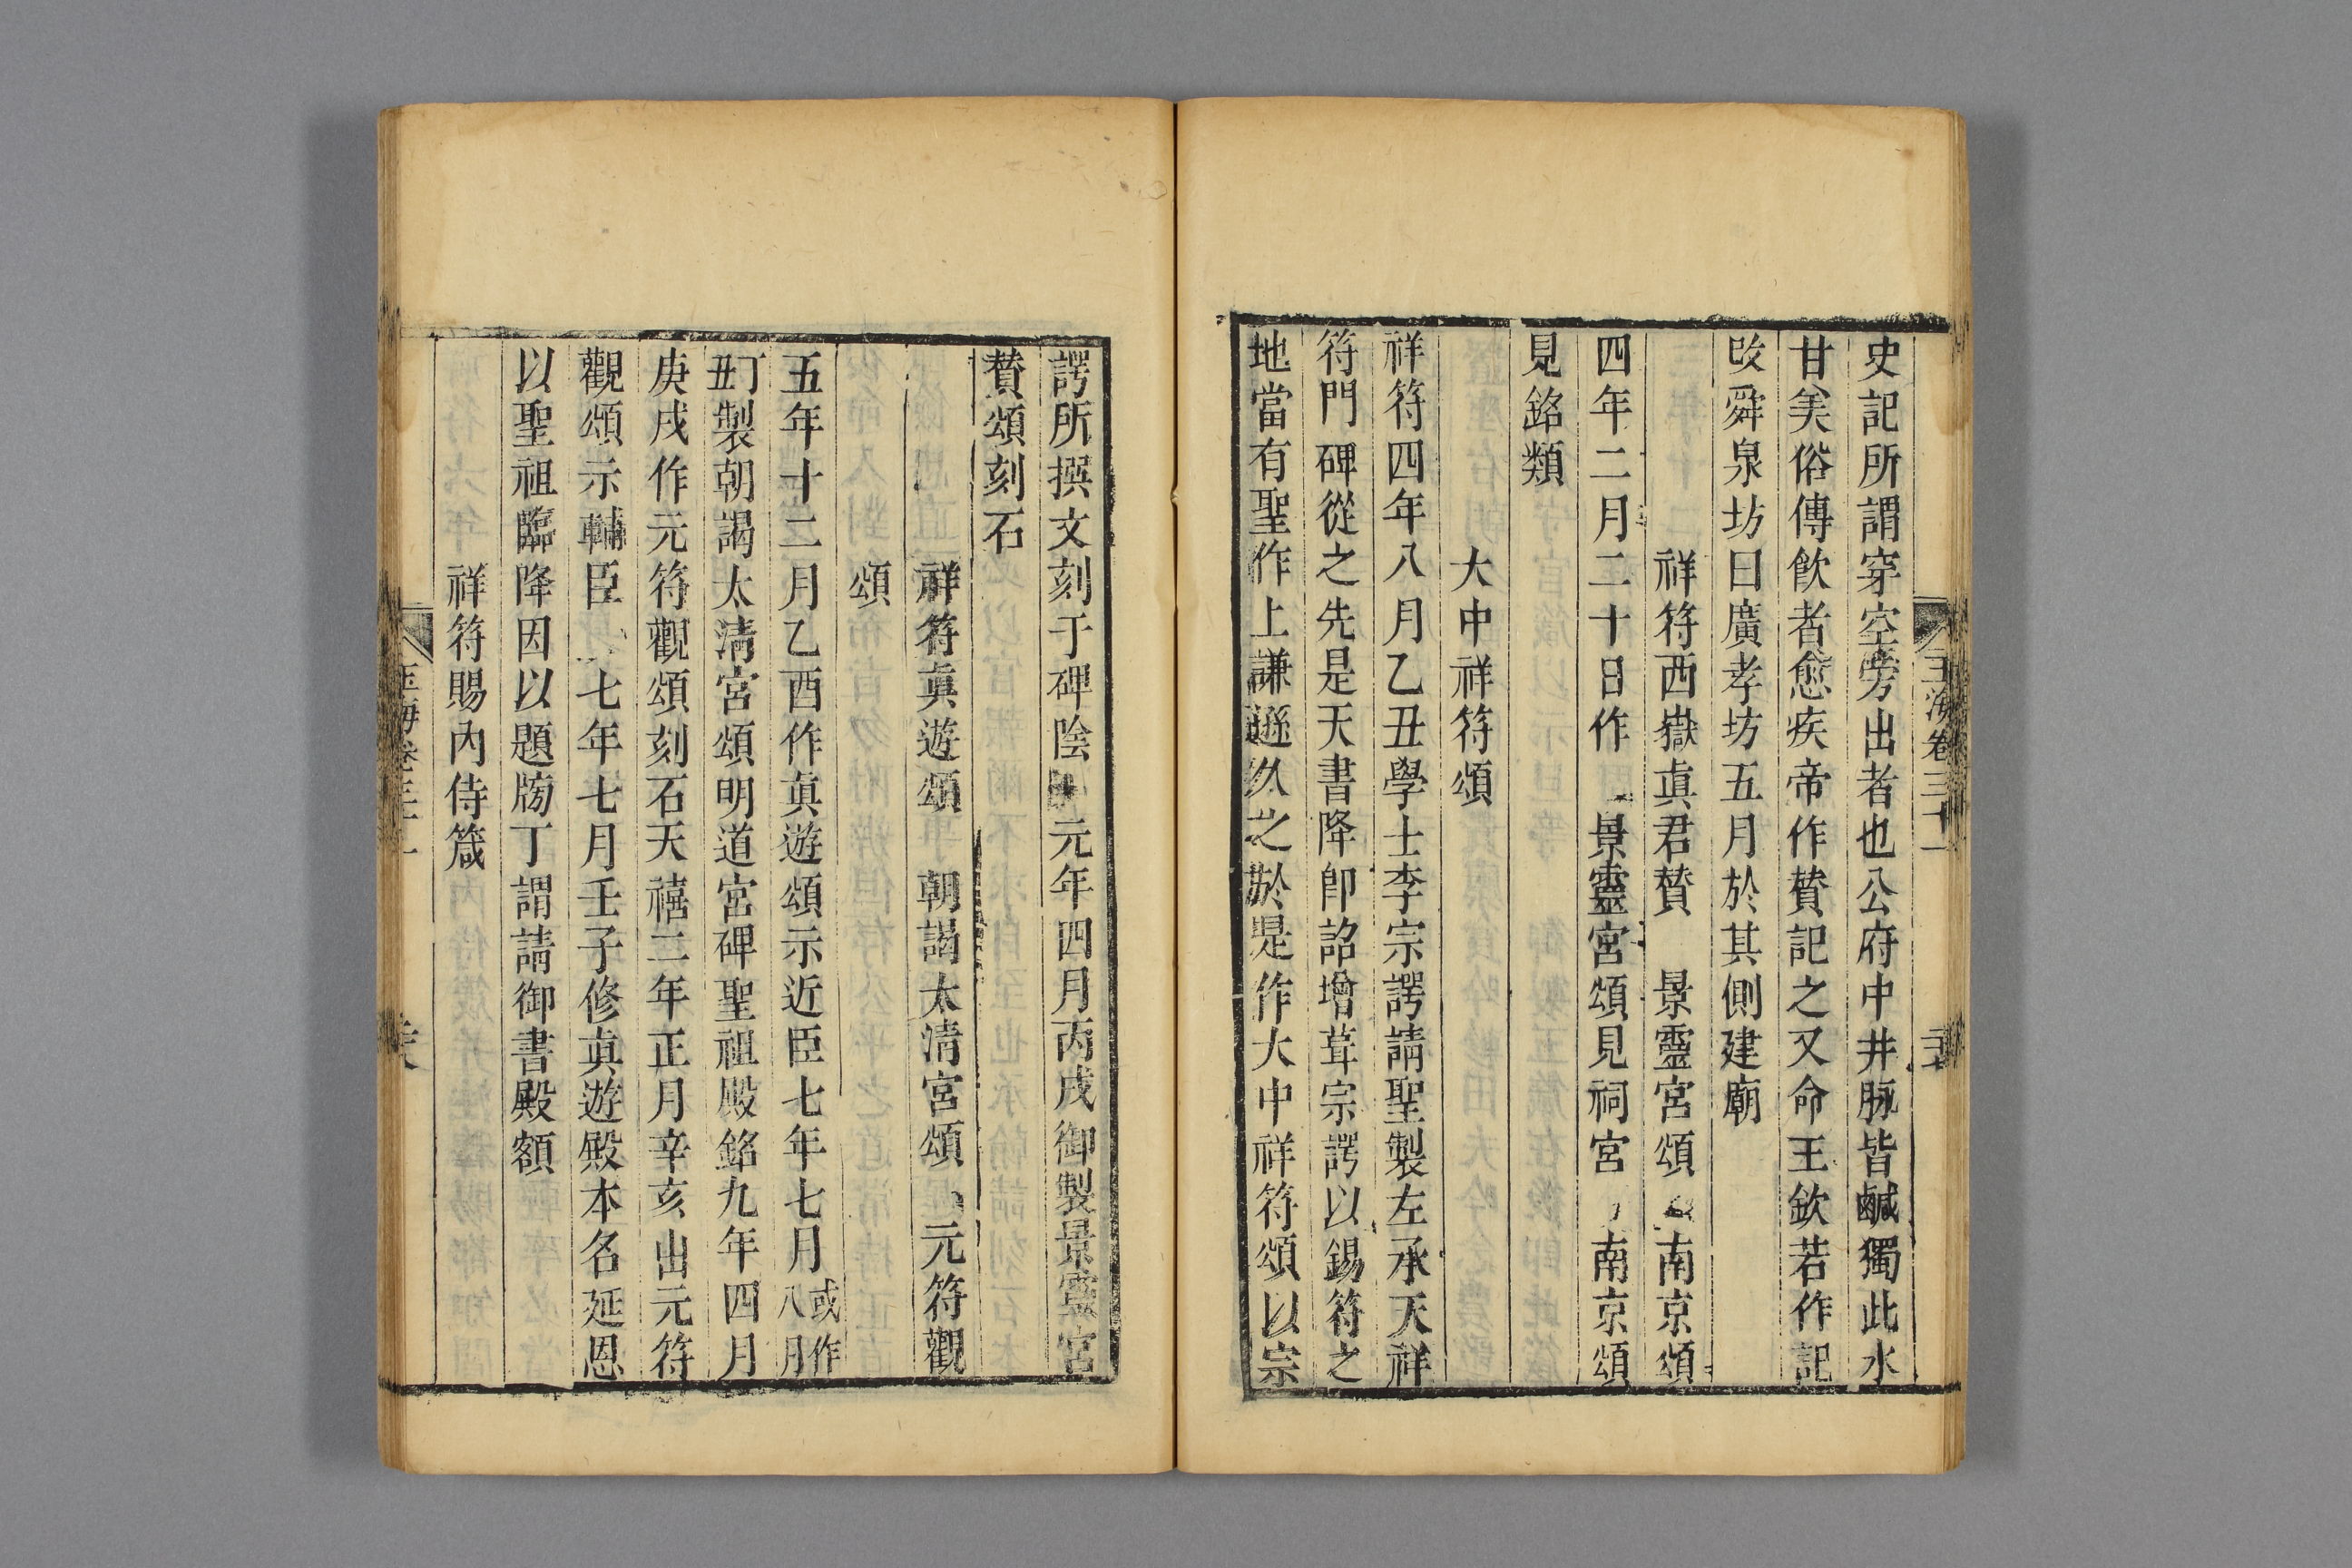 史記所謂穿空旁出者也公府中井脉皆鹹獨此水
甘美俗傳飲者愈疾帝作贊記之又命王欽若作記
改舜泉坊曰廣孝坊五月於其側建廟
祥符西嶽真君贊　景靈宮頌　南京頌
四年二月二十日作　景靈宮頌見祠宮　南京頌
見銘類
大中祥符頌
祥符四年八月乙丑學士李宗諤請聖製左承天祥
符門碑從之先是天書降卽詔增葺宗諤以錫符之
地當有聖作上謙遜久之於是作大中祥符頌以宗
玉海卷三十一
諤所撰文刻于碑陰　元年四月丙戌御製景靈宮
贊頌刻石
祥符真遊頌　朝謁太清宮頌　元符觀
頌
五年十二月乙酉作真遊頌示近臣七年七月或作八月
丁丑製朝謁太清宮頌明道宮碑聖祖殿銘九年四月
庚戌作元符觀頌刻石天禧二年正月辛亥出元符
觀頌示輔臣　七年七月壬子修真遊殿本名延恩
以聖祖臨降因以題牓丁謂請御書殿額
祥符賜內侍箴
玉海卷三十一